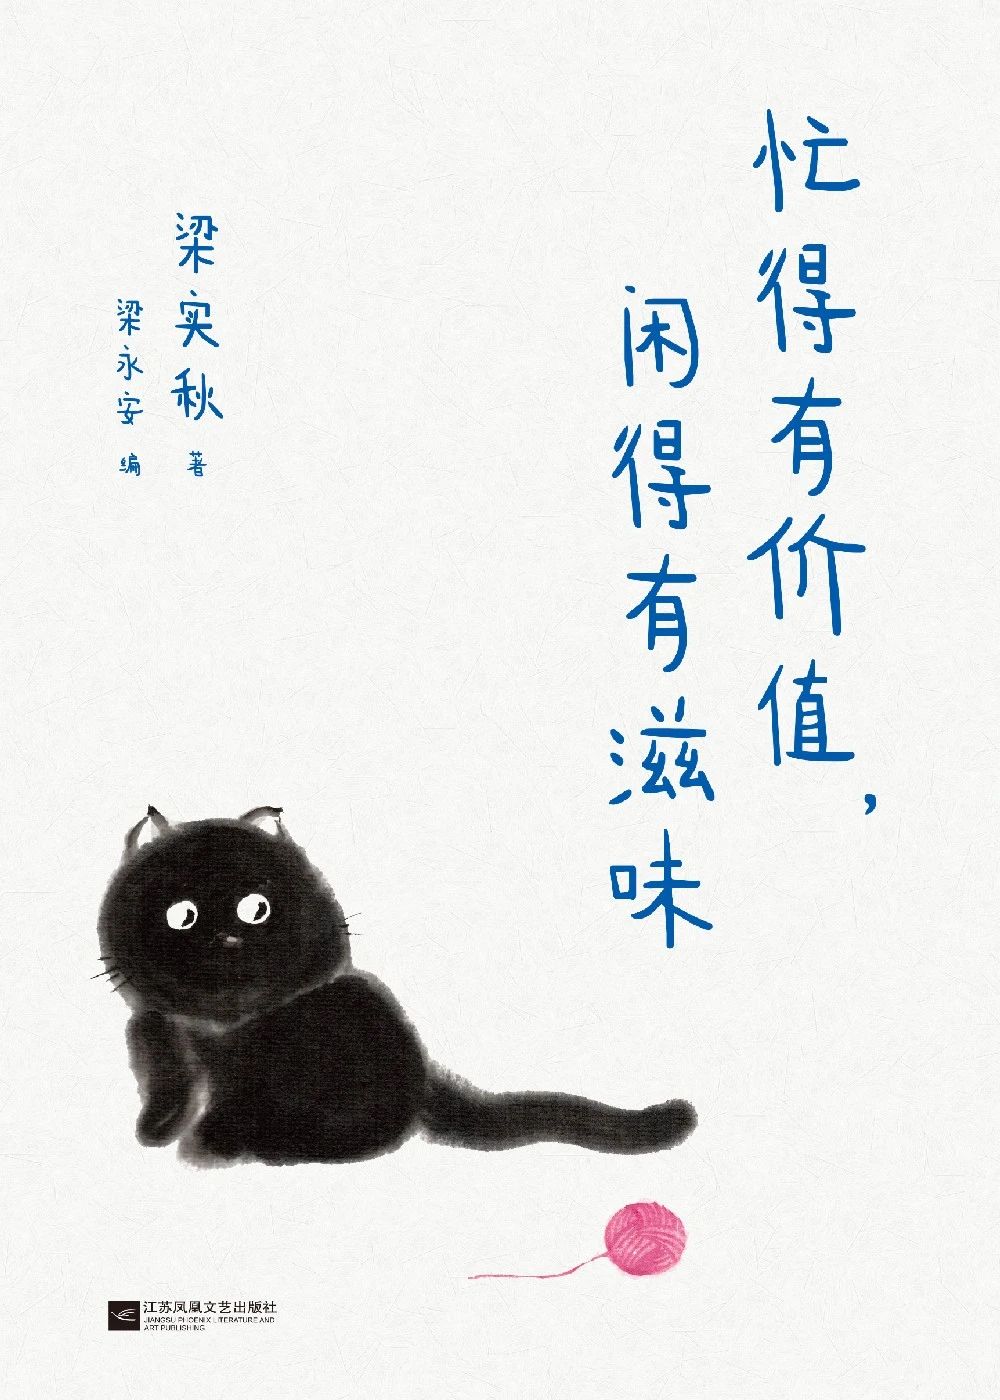 忙得有价值，
闲得有滋味
梁实秋 著
梁永安 编
江苏凤凰文艺出版社
JIANGSU PHOENIX LITERATURE AND
ART PUBLISHING